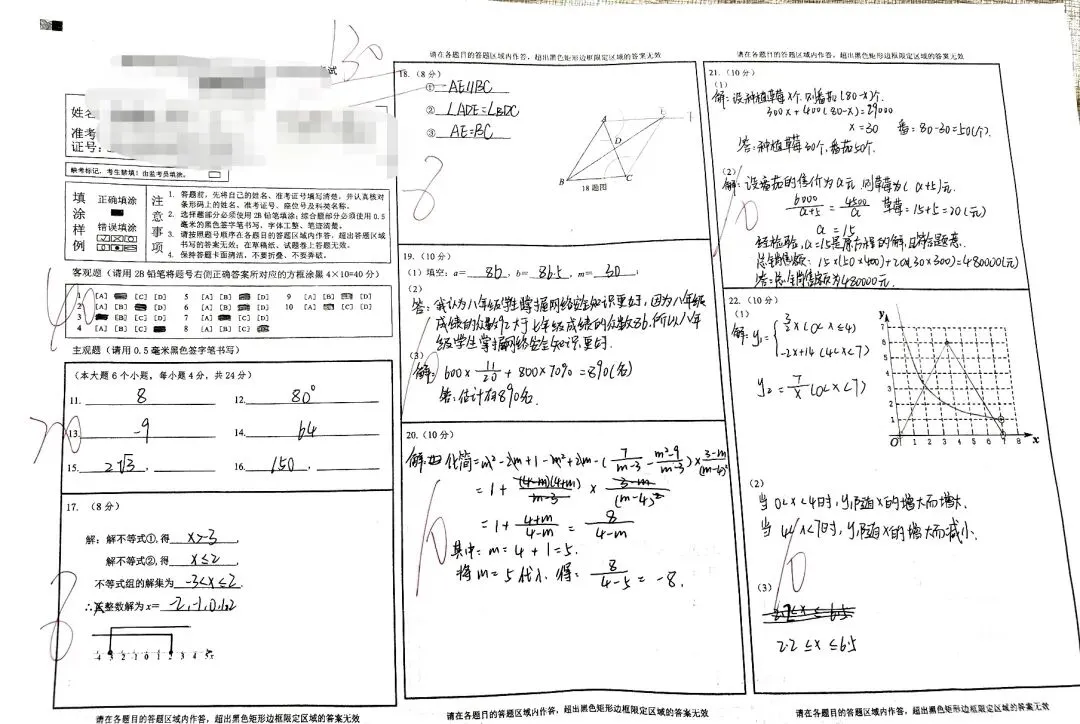 130
考试
姓名
准考
证号:
缺考标记,考生禁填!由监考员填涂。
填涂样例
正确填涂
错误填涂
注意事项
1. 答题前,先将自己的姓名、准考证号填写清楚,并认真核对条形码上的姓名、准考证号、座位号及科类名称。
2. 选择题部分必须使用2B铅笔填涂;综合题部分必须使用0.5毫米的黑色签字笔书写,字体工整、笔迹清楚。
3. 请按照题号顺序在各题目的答题区域内作答,超出答题区域书写的答案无效;在草稿纸、试题卷上答题无效。
4. 保持答题卡面清洁,不要折叠、不要弄破。
客观题(请用2B铅笔将题号右侧正确答案所对应的方框涂黑4×10=40分)
40
1 [A] [C] [D] 5 [A] [B] [D] 9 [A] [B] [D]
2 [A] [C] [D] 6 [A] [B] [D] 10 [A] [C] [D]
3 [B] [C] [D] 7 [A] [C] [D]
4 [A] [B] [C] 8 [A] [B] [C]
主观题(请用0.5毫米黑色签字笔书写)
(本大题6个小题,每小题4分,共24分)
11. 8 12. 80°
13. -9 14. 64
15. 2√3 . 16. 150 .
17. (8分)
解:解不等式①,得 x>-3 ,
解不等式②,得 x≤2 ,
不等式组的解集为 -3<x≤2 .
整数解为x= -2,-1,0,1,2
-4 -3 -2 -1 0 1 2 3 4 5x
8
请在各题目的答题区域内作答,超出黑色矩形边框限定区域的答案无效
请在各题目的答题区域内作答,超出黑色矩形边框限定区域的答案无效
18. (8分)
① AE∥BC
② ∠ADE=∠BDC
③ AE=BC
8
A
E
D
B
C
18题图
19. (10分)
(1)填空:a= 86 , b= 86.5 , m= 30 ;
(2)
答:我认为八年级学生掌握网络安全知识更好,因为八年级
成绩的众数92大于七年级成绩的众数86,所以八年
级学生掌握网络安全知识更好.
(3)
解:600× 11/20 + 800×70% = 890(名)
答:估计有890名.
10
20. (10分)
化简=m²-2m+1-m²+2m-(7/(m-3)-(m²-9)/(m-3))×(3-m)/(m-4)²
=1+(4-m)(4+m)/(m-3)×(3-m)/(m-4)²
=1+(4+m)/(4-m)=8/(4-m)
其中:m=4+1=5.
将m=5代入,得:8/(4-5)=-8.
10
请在各题目的答题区域内作答,超出黑色矩形边框限定区域的答案无效
请在各题目的答题区域内作答,超出黑色矩形边框限定区域的答案无效
21. (10分)
(1)
解:设种植草莓x个,则番茄(80-x)个.
300x+400(80-x)=29000
x=30 番=80-30=50(个).
答:种植草莓30个,番茄50个.
(2)
解:设番茄的售价为a元,则草莓为(a+5)元.
6000/(a+5)=4500/a 草莓=15+5=20(元)
a=15
经检验,a=15是原方程的解,且符合题意.
总销售额:15×(50×400)+20×(30×300)=480000(元)
答:总销售额为480000元.
10
22. (10分)
(1)
解:y₁={3/2x(0<x≤4)
-2x+14(4<x<7)
y₂=7/x(0<x<7)
y
7
6
5
4
3
2
1
O 1 2 3 4 5 6 7 8 x
(2)
当0<x<4时,y₁随x的增大而增大.
当4<x<7时,y₁随x的增大而减小.
10
(3)
2.2≤x≤6.5
2.2≤x≤6.5
请在各题目的答题区域内作答,超出黑色矩形边框限定区域的答案无效